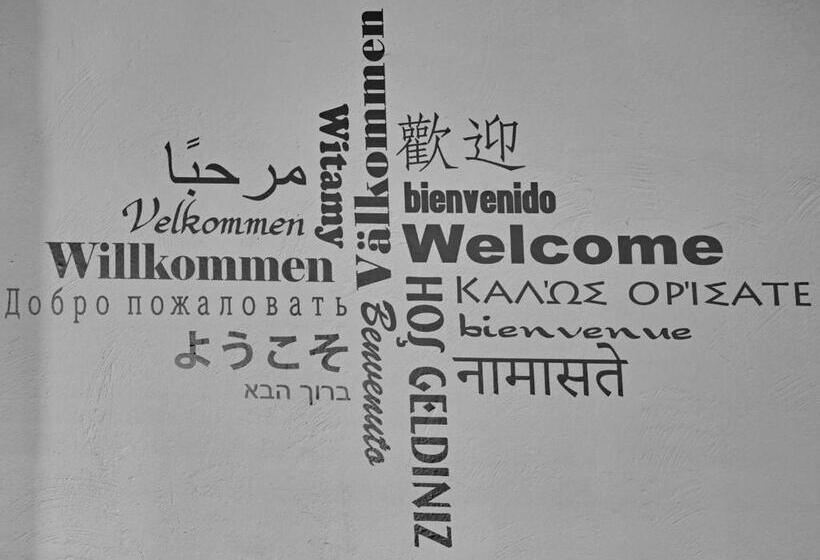 Välkommen
Witamy
歡迎
مرحبًا
bienvenido
Velkommen
Welcome
Willkommen
ΚΑΛΏΣ ΟΡΊΣΑΤΕ
Добро пожаловать
bienvenue
ようこそ
नामासते
ברוך הבא
Benvenuto
HOŞ GELDINIZ